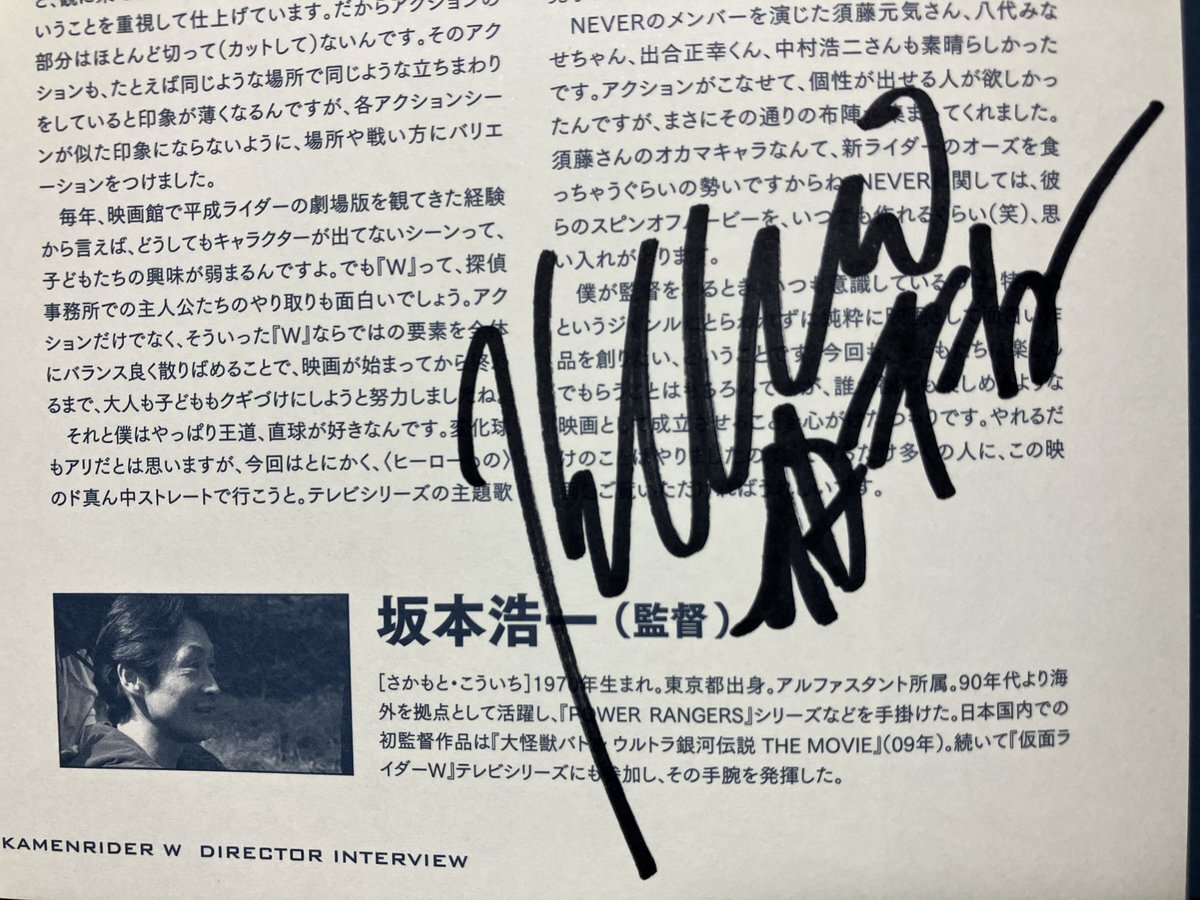 いうことを重視して仕上げています。だからアクションの
部分はほとんど切って(カットして)ないんです。そのアク
ションも、たとえば同じような場所で同じような立ちまわり
をしていると印象が薄くなるんですが、各アクションシー
ンが似た印象にならないように、場所や戦い方にバリエ
ーションをつけました。
毎年、映画館で平成ライダーの劇場版を観てきた経験
から言えば、どうしてもキャラクターが出てないシーンって、
子どもたちの興味が弱まるんですよ。でも『W』って、探偵
事務所での主人公たちのやり取りも面白いでしょう。アク
ションだけでなく、そういった『W』ならではの要素を全体
にバランス良く散りばめることで、映画が始まってから終わ
るまで、大人も子どももクギづけにしようと努力しましたね。
それと僕はやっぱり王道、直球が好きなんです。変化球
もアリだとは思いますが、今回はとにかく、〈ヒーローもの〉
のド真ん中ストレートで行こうと。テレビシリーズの主題歌
NEVERのメンバーを演じた須藤元気さん、八代みな
せちゃん、出合正幸くん、中村浩二さんも素晴らしかった
です。アクションがこなせて、個性が出せる人が欲しかっ
たんですが、まさにその通りの布陣が集まってくれました。
須藤さんのオカマキャラなんて、新ライダーのオーズを食
っちゃうぐらいの勢いですからね。NEVERに関しては、彼
らのスピンオフムービーを、いつでも作れるぐらい(笑)、思
い入れがあります。
僕が監督をするとき、いつも意識しているの 特
というジャンルにとらわれずに純粋に映画として面白い作
品を創りたい、ということです。今回も 楽
でもらうことはもちろんです が、誰 しめるような
映画として成立させることを心がけたつもりです。やれるだ
けのことはやりましたので、 だけ多くの人に、この映
画をご覧いただければうれしいです。
坂本浩一(監督)
[さかもと・こういち]1970年生まれ。東京都出身。アルファスタント所属。90年代より海
外を拠点として活躍し、『POWER RANGERS』シリーズなどを手掛けた。日本国内での
初監督作品は『大怪獣バトル ウルトラ銀河伝説 THE MOVIE』(09年)。続いて『仮面ラ
イダーW』テレビシリーズにも参加し、その手腕を発揮した。
KAMENRIDER W DIRECTOR INTERVIEW